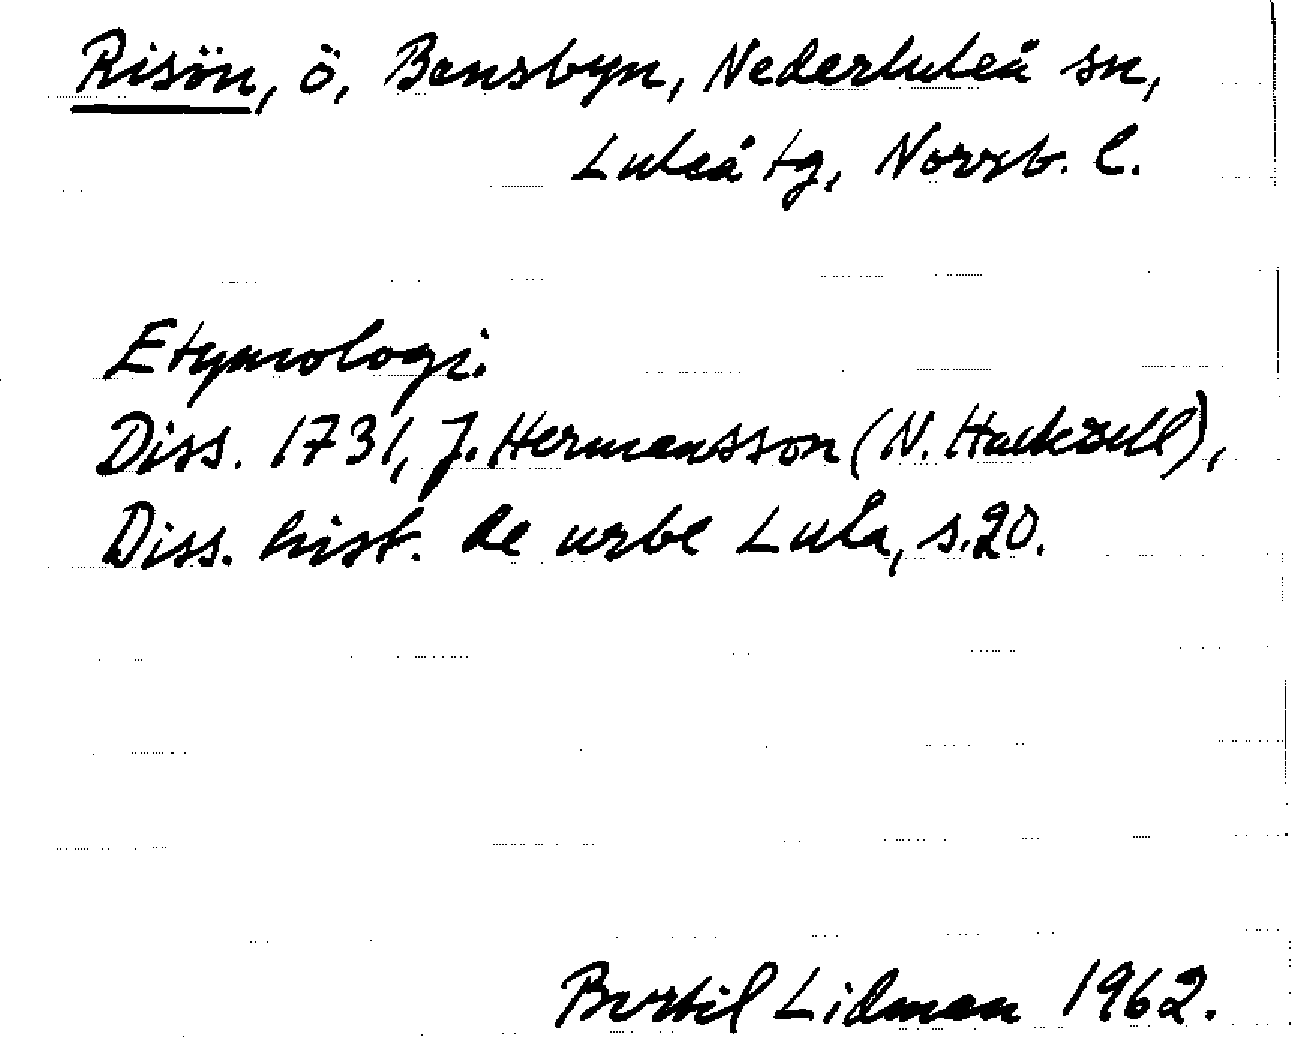 Risön, ö, Bensbyn, Nederluleå sn,
Luleå tg, Norrb. l.
Etymologi.
Diss. 1731, J. Hermansson (N. Hackzell),
Diss. hist. de urbe Lula, s.20.
Bertil Lidman 1962.